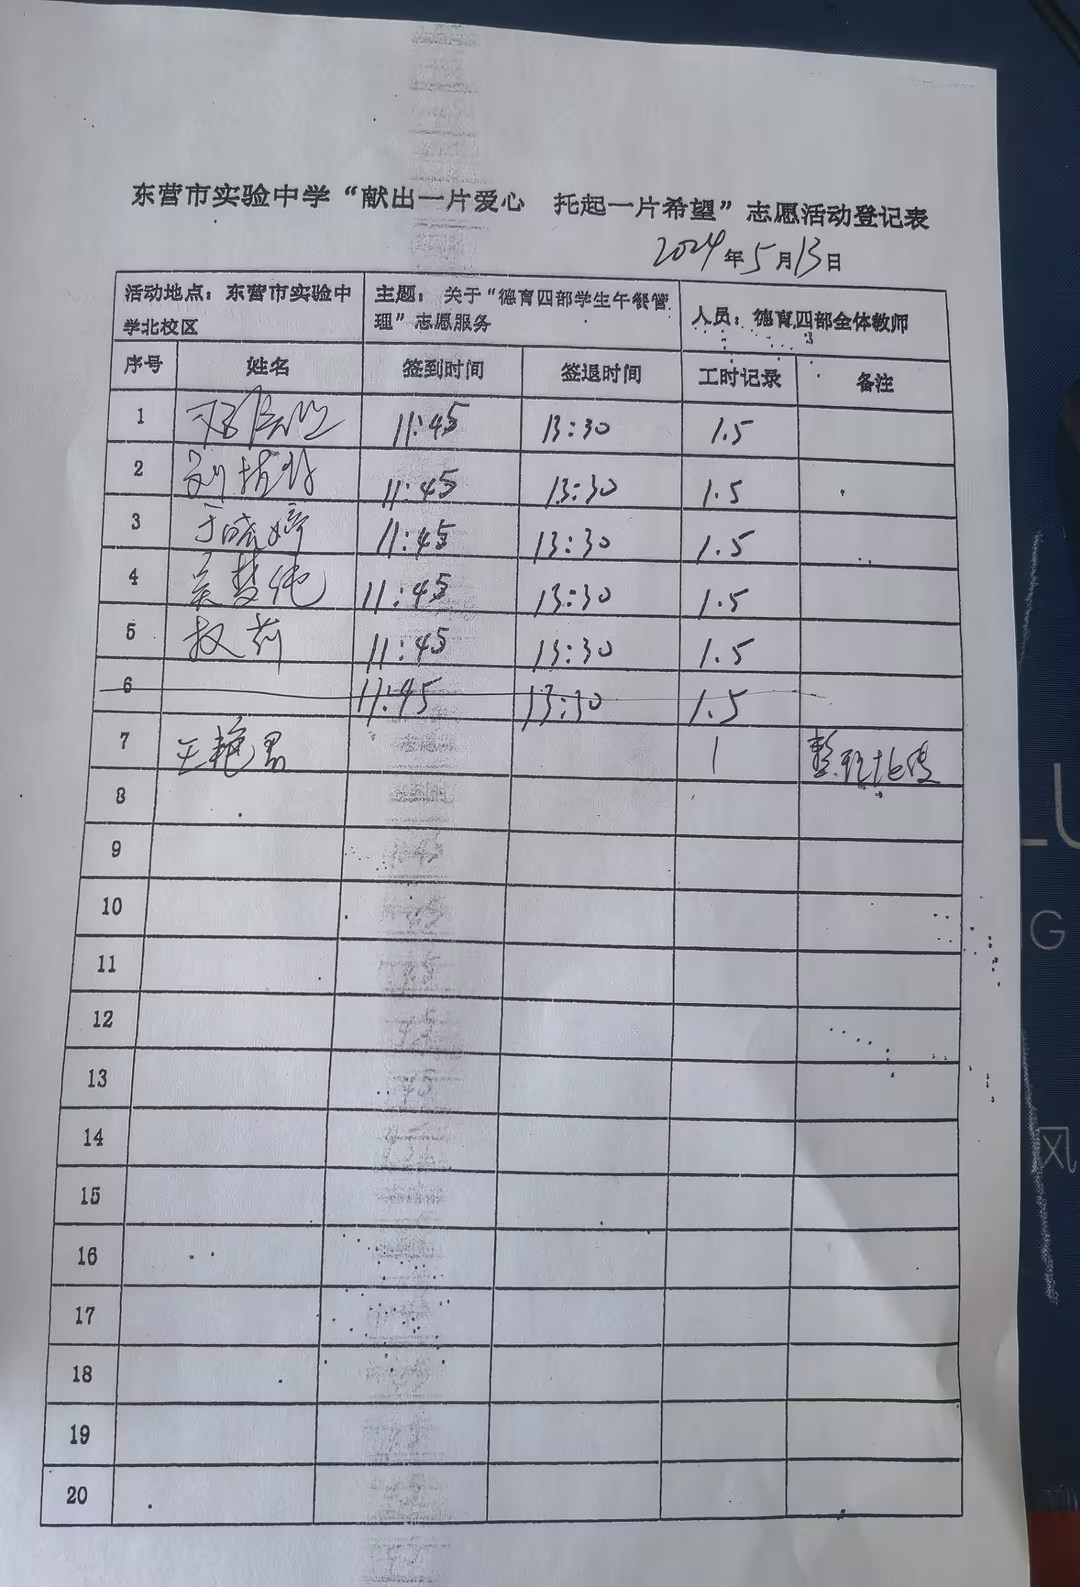 东营市实验中学“献出一片爱心 托起一片希望”志愿活动登记表
2024年5月13日
活动地点：东营市实验中学北校区 主题：关于“德育四部学生午餐管理”志愿服务 人员：德育四部全体教师
序号 姓名 签到时间 签退时间 工时记录 备注
1 11:45 13:30 1.5
2 刘 11:45 13:30 1.5
3 于晓婷 11:45 13:30 1.5
4 吴梦 11:45 13:30 1.5
5 权莉 11:45 13:30 1.5
6 11:45 13:30 1.5
7 王艳君 1 整理
8
9
10
11
12
13
14
15
16
17
18
19
20
LU
G
风